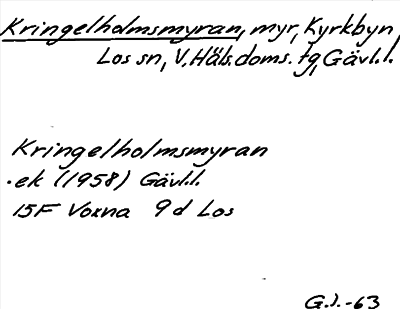 Kringelholmsmyran, myr, Kyrkbyn,
Los sn, V. Häls. doms. tg, Gävl.l.
Kringelholmsmyran
.ek (1958) Gävl.l.
15F Voxna 9d Los
G.J.-63